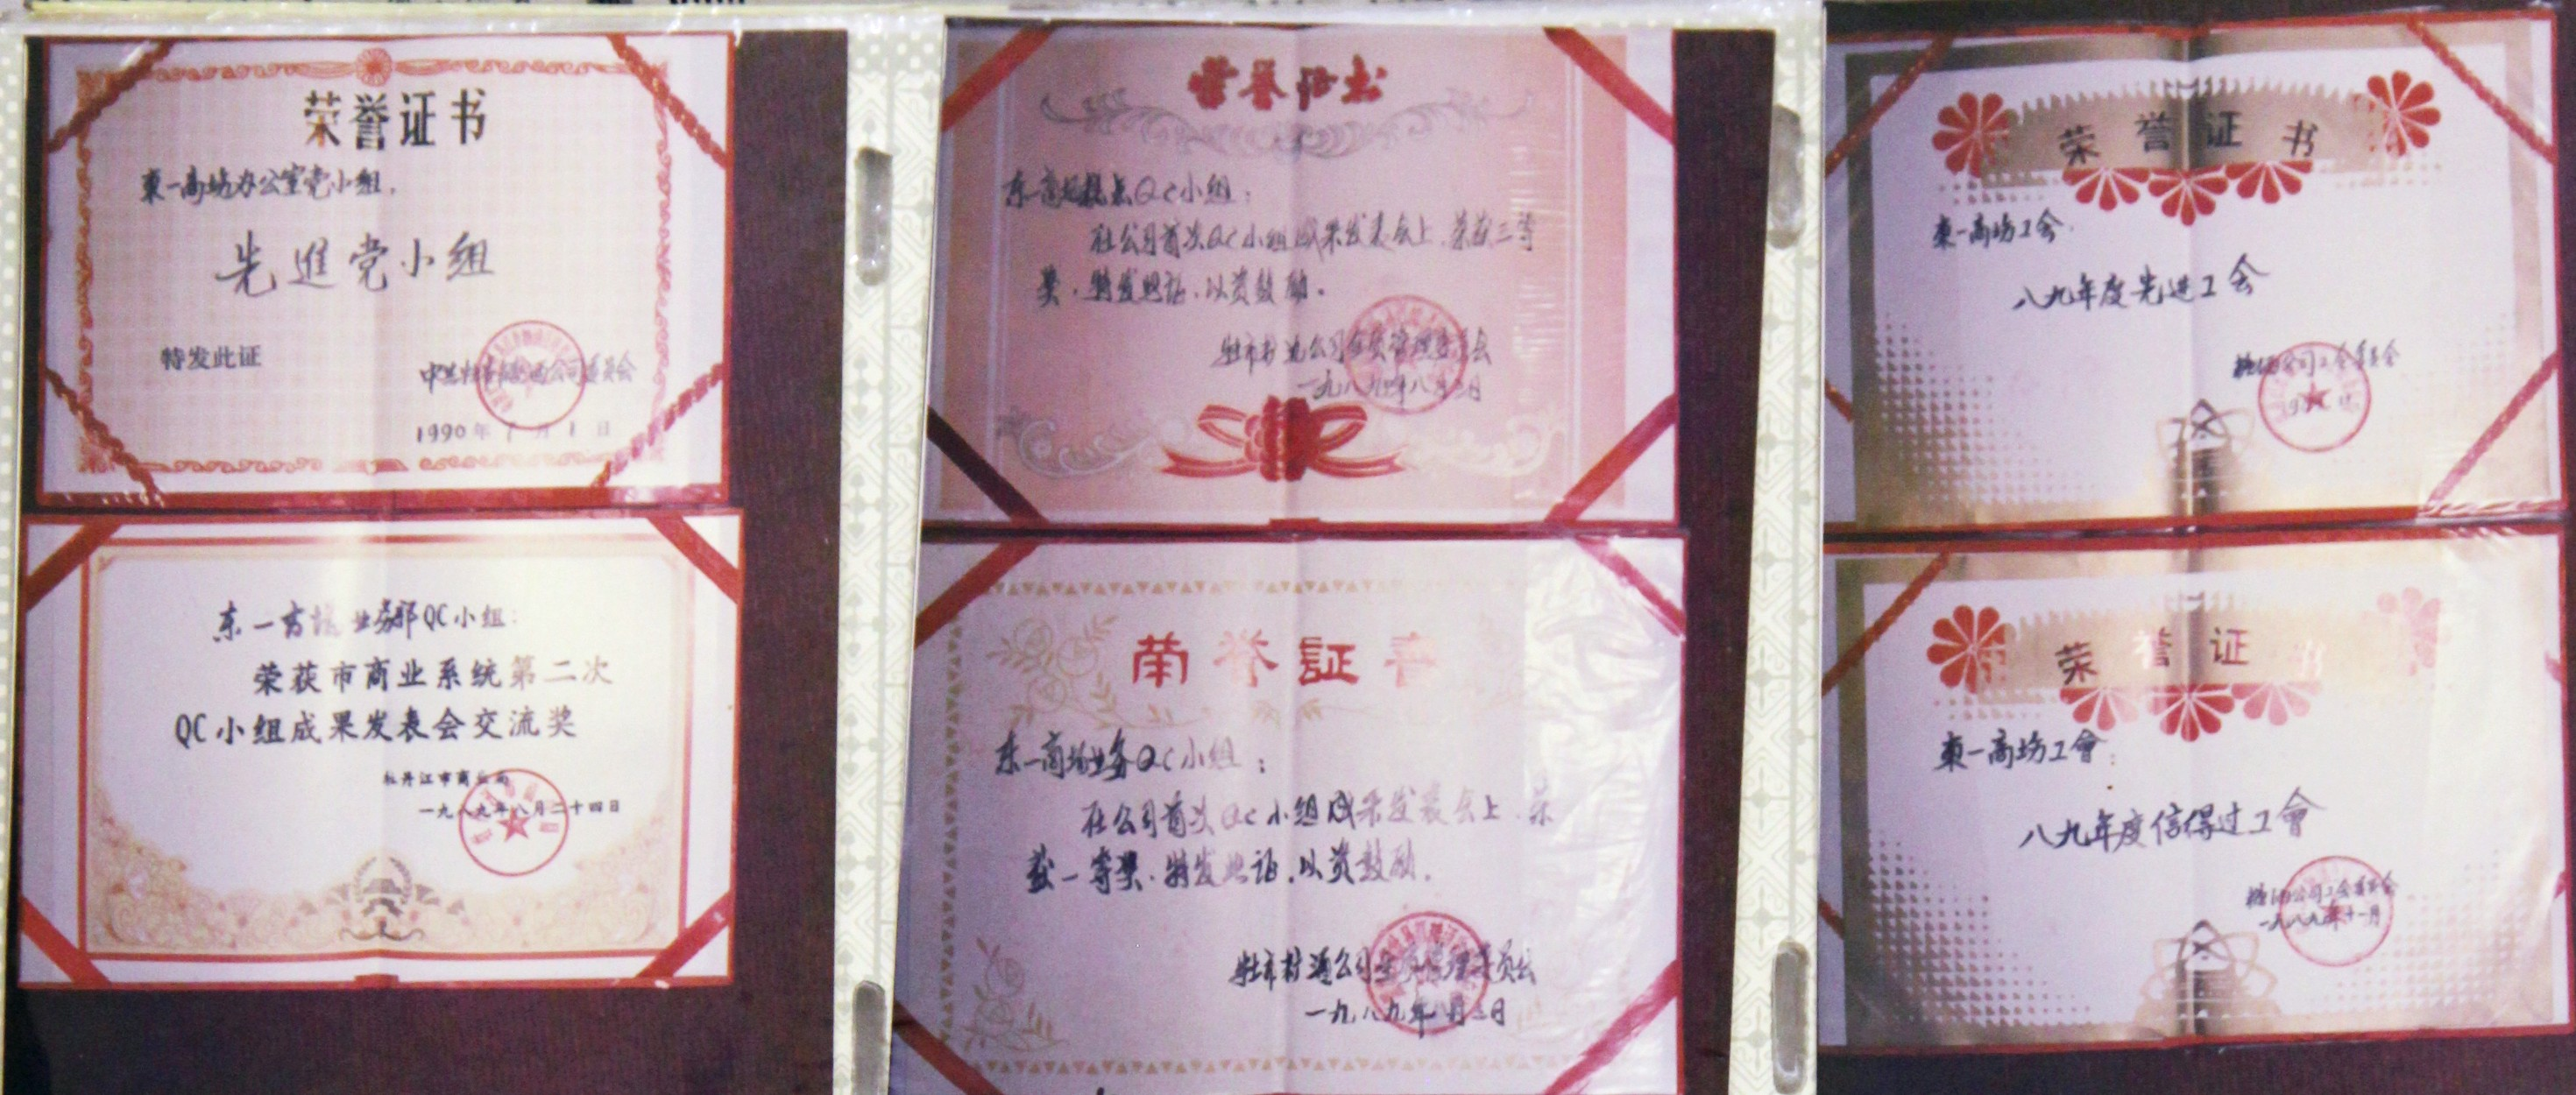 荣誉证书
東一商场办公室党小组.
先進党小组
特发此证
1990年7月1日
东一商场业务部QC小组:
荣获市商业系统第二次
QC小组成果发表会交流奖
牡丹江市商业局
一九八九年八月二十四日
荣誉证书
东一商场 QC小组:
在公司首次QC小组成果发表会上.荣获三等
奖.特发此证.以资鼓励.
一九八九年八月三日
荣誉証書
东一商场业务QC小组:
在公司首次QC小组成果发表会上.荣
获一等奖.特发此证.以资鼓励.
一九八九年八月三日
荣誉证书
東一商场工会.
八九年度先进工会
糖酒公司工会委员会
荣誉证书
東一商场工會:
八九年度信得过工會
糖酒公司工会委员会
一九八九年十一月